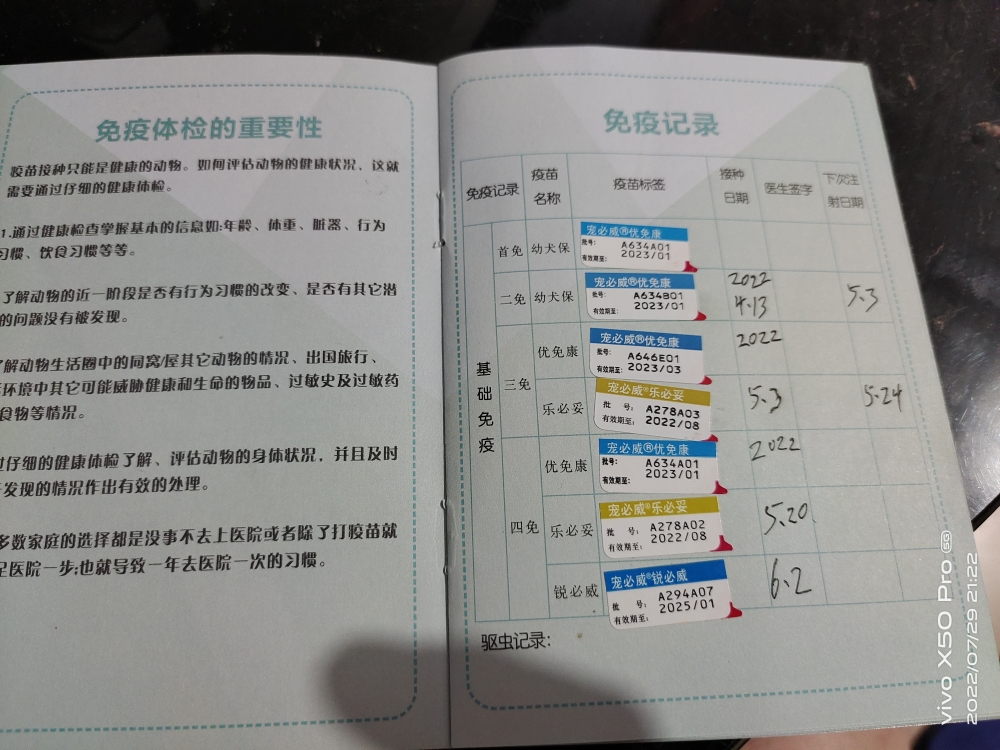 免疫体检的重要性
疫苗接种只能是健康的动物。如何评估动物的健康状况、这就
需要通过仔细的健康体检。
1.通过健康检查掌握基本的信息如:年龄、体重、脏器、行为
习惯、饮食习惯等等。
了解动物的近一阶段是否有行为习惯的改变、是否有其它潜
的问题没有被发现。
了解动物生活圈中的同窝/屋其它动物的情况、出国旅行、
环境中其它可能威胁健康和生命的物品、过敏史及过敏药
食物等情况。
过仔细的健康体检了解、评估动物的身体状况，并且及时
发现的情况作出有效的处理。
多数家庭的选择都是没事不去上医院或者除了打疫苗就
足医院一步;也就导致一年去医院一次的习惯。
免疫记录
免疫记录 疫苗名称 疫苗标签 接种日期 医生签字 下次注射日期
基础免疫
首免 幼犬保
宠必威®优免康
批号: A634A01
有效期至: 2023/01
二免 幼犬保
宠必威®优免康
批号: A634B01
有效期至: 2023/01
2022
4.13
5.3
三免
优免康
宠必威®优免康
批号: A646E01
有效期至: 2023/03
2022
乐必妥
宠必威®乐必妥
批 号: A278A03
有效期至: 2022/08
5.3
5.24
四免
优免康
宠必威®优免康
批号: A634A01
有效期至: 2023/01
2022
乐必妥
宠必威®乐必妥
批 号: A278A02
有效期至: 2022/08
5.20
锐必威
宠必威®锐必威
批 号: A294A07
有效期至: 2025/01
6.2
驱虫记录:
vivo X50 Pro 5G
2022/07/29 21:22